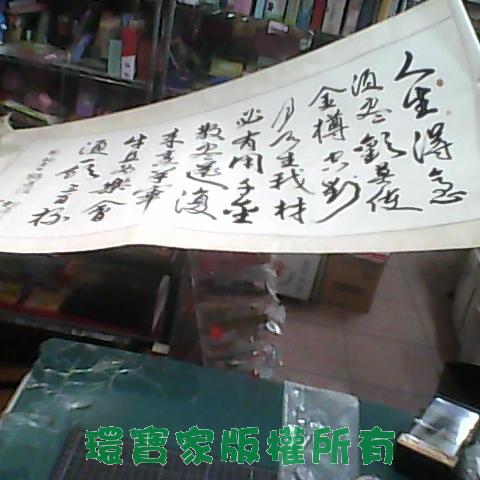 人生得意
須盡歡莫使
金樽空對
月天生我材
必有用千金
散盡還復
來烹羊宰
牛且為樂會
須一飲三百杯
環寶家版權所有